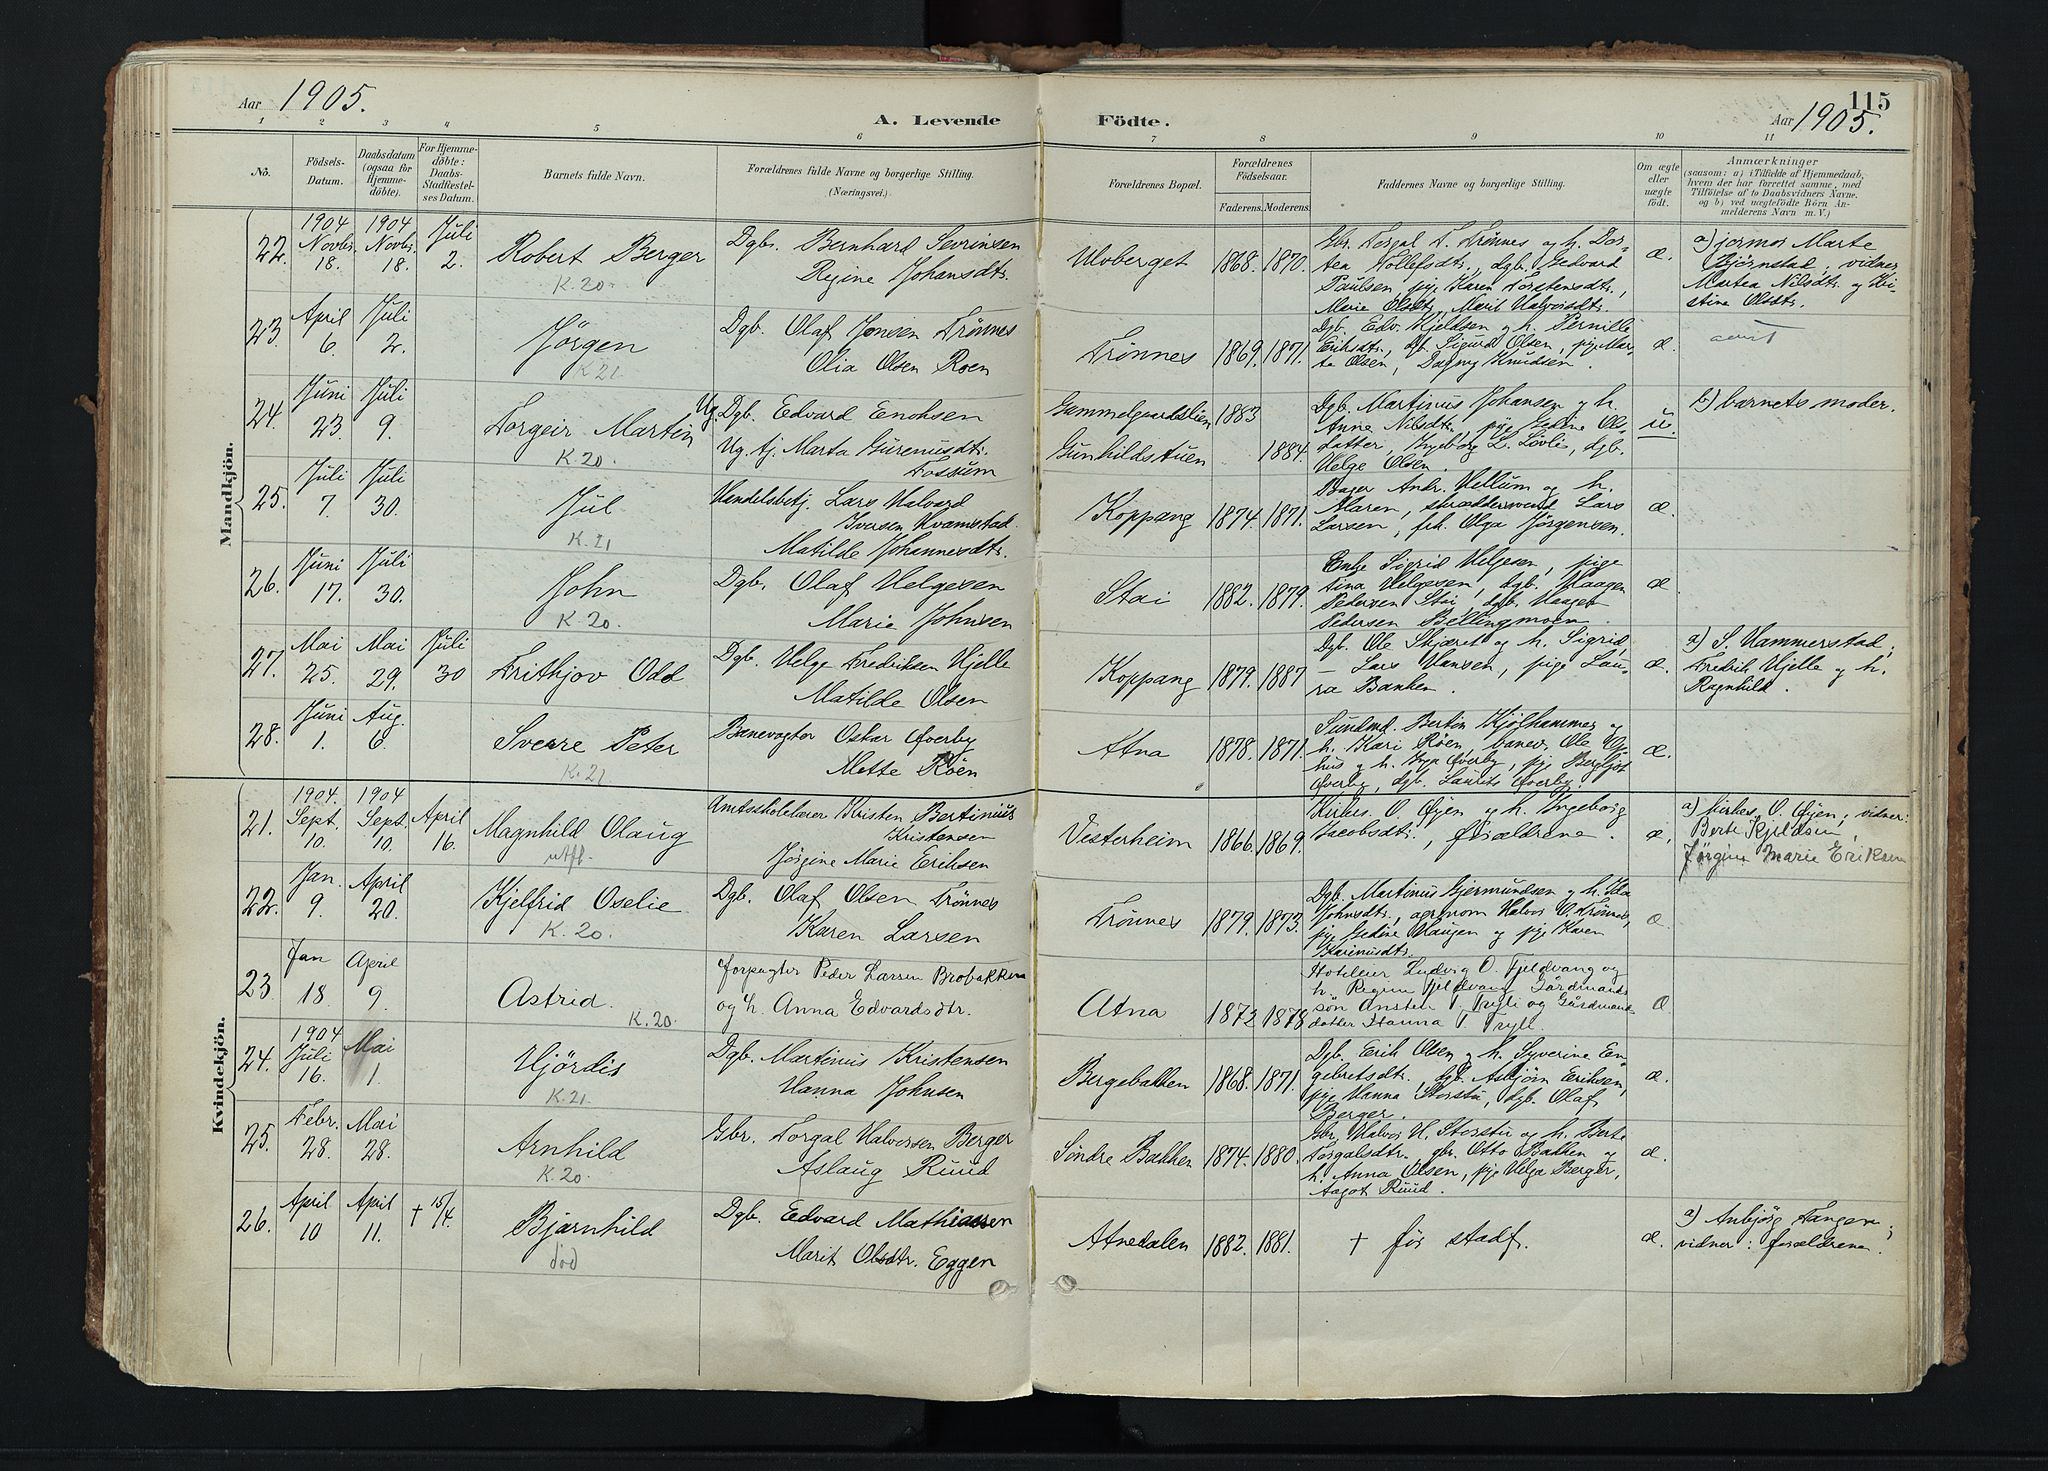 Aar 1905.
A. Levende Födte.
115
Aar 1905.
1 2 3 4 5 6 7 8 9 10 11
No.
Födsels-Datum.
Daabsdatum (ogsaa for Hjemme-döbte).
For Hjemme-döbte: Daabs-Stadfæstel-ses Datum.
Barnets fulde Navn.
Forældrenes fulde Navne og borgerlige Stilling.
(Næringsvei.)
Forældrenes Bopæl.
Forældrenes Födselsaar.
Faderens. Moderens.
Faddernes Navne og borgerlige Stilling.
Om ægte eller uægte födt.
Anmærkninger
(saasom: a) i Tilfælde af Hjemmedaab,
hvem der har forrettet samme, med
Tilföielse af to Daabsvidners Navne.
og b) ved uægtefödte Börn An-
melderens Navn m. V.)
Mandkjön.
22. 1904 Novbr. 18. 1904 Novbr. 18. Juli 2. Robert Berger K. 20.
Dgb. Bernhard Sevrinsen
Regine Johansdtr.
Ulvberget 1868. 1870.
Gbr. Torgal T. Trønnes og h. Dor-
tea Tollefsdtr., dgb. Gedvard
Paulsen, pige Karen Torstensdtr.,
Marie Olsdtr., Marit Halvorsdtr.
æ.
a) jormor Marte
Bjørnstad; vidner
Martea Nilsdtr. og Kri-
stine Olsdtr.
23. April 6. Juli 2. Jörgen K 21.
Dgb. Olaf Jonsen Trønnes
Olia Olsen Roen
Trønnes 1869. 1871.
Dgb. Edv. Kjeldsen og h. Pernille
Eriksdtr., dgb. Sigurd Olsen, pige Mar-
te Olsen, Dagny Knudsen.
æ.
24. Juni 23. Juli 9. Torgeir Martin K. 20.
Ug. Dgb. Edvard Enoksen
Ug. tj. Marta Gurenusdtr.
Fossum
Gammelgaardslien 1883
Gunhildstuen 1884.
Dgb. Martinus Johansen og h.
Anne Nilsdtr., pige Gedine Ols-
datter, Ingeborg L. Lövli, dgb.
Helge Olsen.
u.
b) barnets moder.
25. Juli 7. Juli 30. Jul K. 21
Handelsbetj. Lars Halvard
Iversen Kvamstad
Matilde Johannesdtr.
Koppang 1874. 1871.
Bager Andr. Hellum og h.
Maren, skræddersvend Lars
Larsen, frk. Olga Jörgensen.
æ.
26. Juni 17. Juli 30. John K. 20.
Dgb. Olaf Helgesen
Marie Johnsen
Stai 1882. 1879.
Enke Sigrid Helgesen, pige
Tina Helgesen, dgb. Haagen
Pedersen Stai, dgb. Haagen
Pedersen Bellingmoen.
æ.
27. Mai 25. Mai 29. Juli 30 Frithjov Odd
Dgb. Helge Fredriksen Hjelle
Matilde Olsen
Koppang 1879. 1887
Dgb. Ole Skjæret og h. Sigrid,
– Lars Hansen, pige Lau-
ra Banken.
æ.
a) S. Hammerstad;
Fredrik Hjelle og h.
Ragnhild.
28. Juni 1. Aug. 6. Sverre Peter K. 21.
Banevogter Oskar Øverby
Mette Röen
Atna 1878. 1871.
Bertin Kjölhammer og
h. Kari Röen, banev. Ole
hus og h. Inga Øverby, pige Bergljot
Øverby, dgb. Laurits Øverby.
æ.
Kvindekjön.
21. 1904. Sept. 10. 1904 Sept. 10. April 16. Magnhild Olaug utfl.
Amtsskolelærer Kristen Bertinius
Kristensen
Jörgine Marie Eriksen
Vesterheim 1866. 1869.
Kirkes. O. Øyen og h. Ingeborg
Jacobsdtr., forældrene.
æ.
a) kirkes. O. Øyen; vidner:
Berte Kjeldsen,
Jørgine Marie Eriksen
22. Jan. 9. April 20. Kjelfrid Oselie K. 20.
Dgb. Olaf Olsen Trønnes
Karen Larsen
Trønnes 1879. 1873.
Dgb. Martinus Gjermundsen og h. Ida
Johnsdtr., agronom Halvor O. Trønnes,
pige Gedine Haugen og pige Karen
Karinusdtr.
æ.
23. Jan 18. April 9. Astrid. K. 20.
Forpagter Peder Larsen Brobakken
og h. Anna Edvardsdtr.
Atna 1872 1878
Hoteleier Ludvig O. Fjeldvang og
h. Regine Fjeldvang Gårdmands
søn Ansten T. Tryli og Gårdmand
datter Hanna T. Tryli.
Æ
24. 1904 Juli 16. Mai 1. Hjördis K. 21.
Dgb. Martinus Kristensen
Hanna Johnsen
Bergebakken 1868. 1871.
Dgb. Erik Olsen og h. Syverine En-
gebretsdtr., dgb. Asbjörn Eriksen,
pige Hanna Storstu, dgb. Olaf
Berger.
æ.
25. Febr. 28. Mai 28. Arnhild K. 20.
Gbr. Torgal Halvorsen Berger
Aslaug Ruud
Söndre Bakken 1874. 1880.
Gbr. Halvor H. Storstu og h. Berte
Torgalsdtr., gbr. Otto Bakken og
h. Anna Olsen, pige Helga Berger,
Aagot Ruud.
æ.
26. April 10 April 11. † 15/4. Bjarnhild död
Dgb. Edvard Mathiassen
Marit Olsdtr. Eggen
Atnedalen 1882. 1881.
† før stadf.
æ.
a) Anbjörg Tangen;
vidner: forældrene.